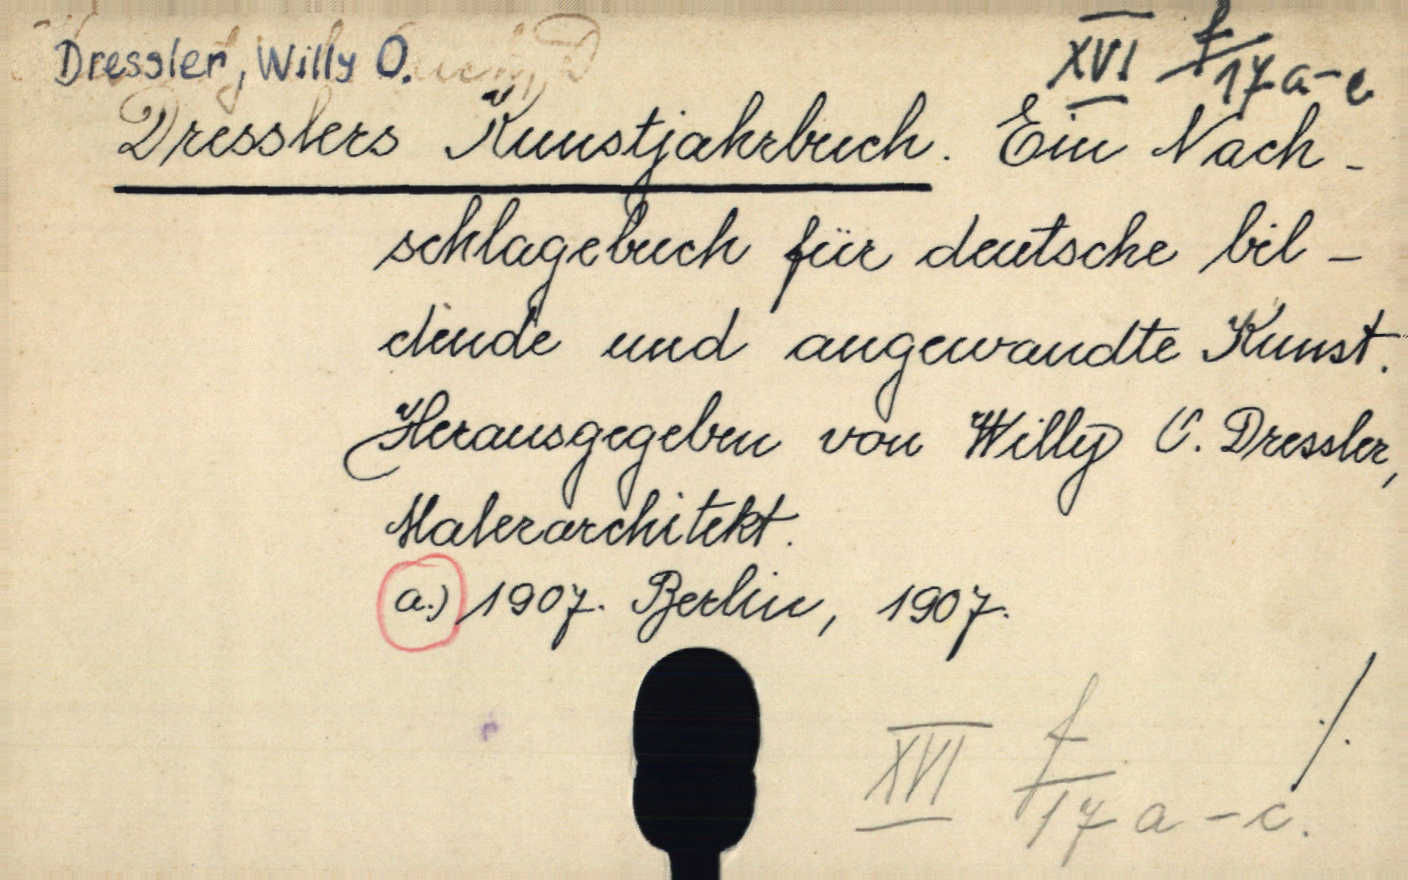 Dressler, Willy O.
XVI f/17 a-c
Dresslers Kunstjahrbuch. Ein Nach-
schlagebuch für deutsche bil-
dende und angewandte Kunst.
Herausgegeben von Willy O. Dressler,
Malerarchitekt.
a.) 1907. Berlin, 1907.
XVI f/17 a-c.